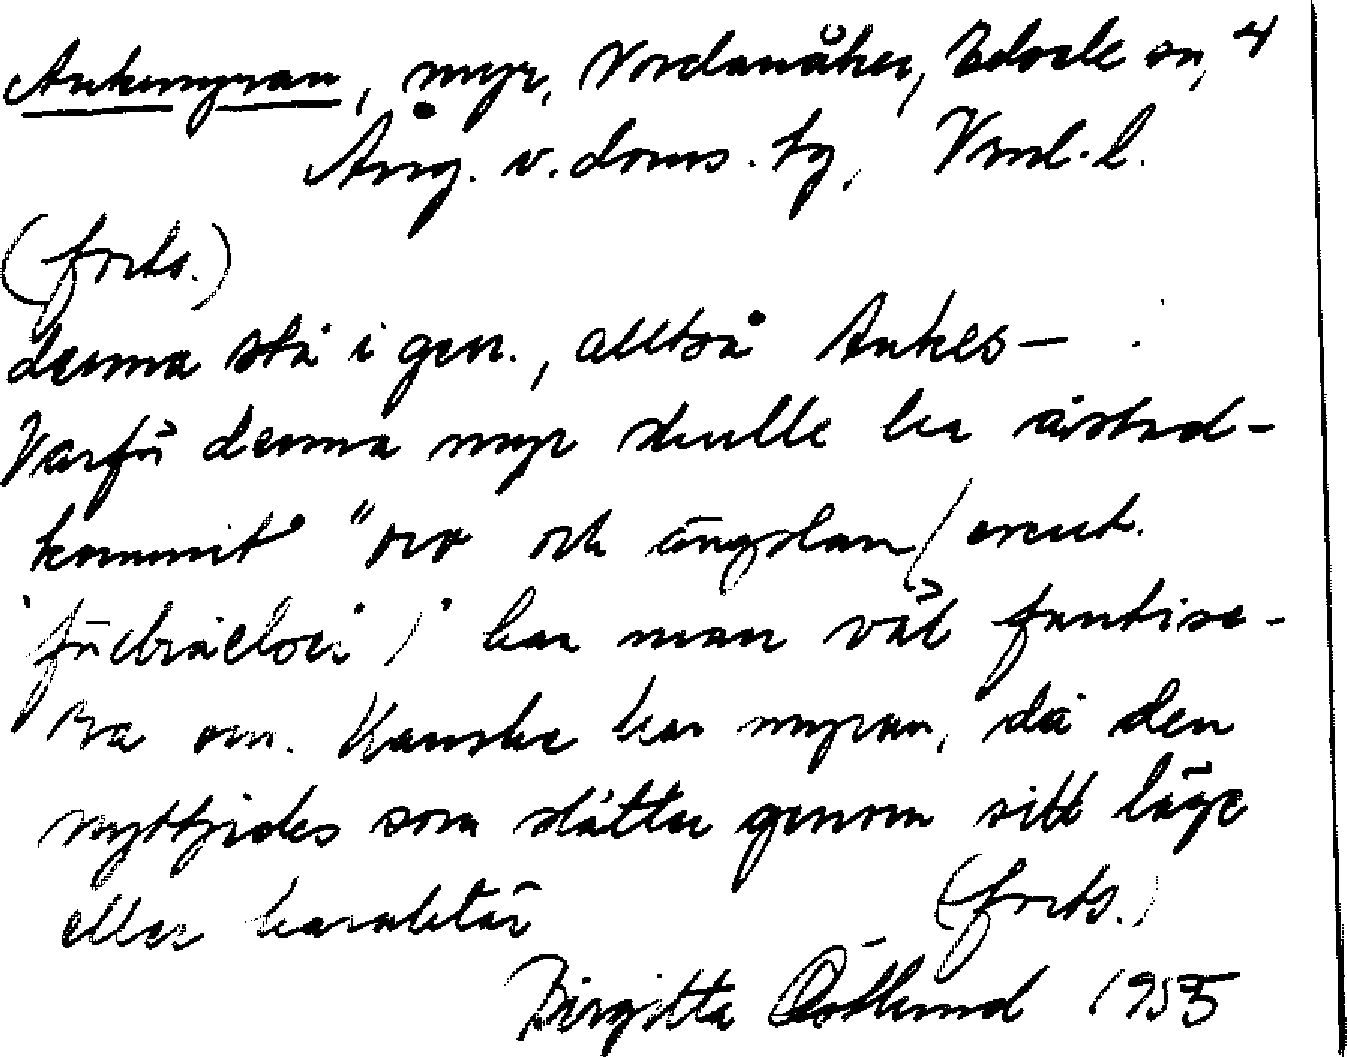 Ankemyran, myr, Nordanåker, Edsele sn, 4
Ång. v. doms. tg, Vnrl. l.
(forts.)
denna stå i gen., alltså Ankes-.
Varför denna myr skulle ha åstad-
kommit "oro och ängslan (event.
förbråelser)" kan man väl fantise-
ra om. Kanske har myran, då den
nyttjades som slåtter genom sitt läge
eller karaktär (forts.)
Birgitta Östlund 1955